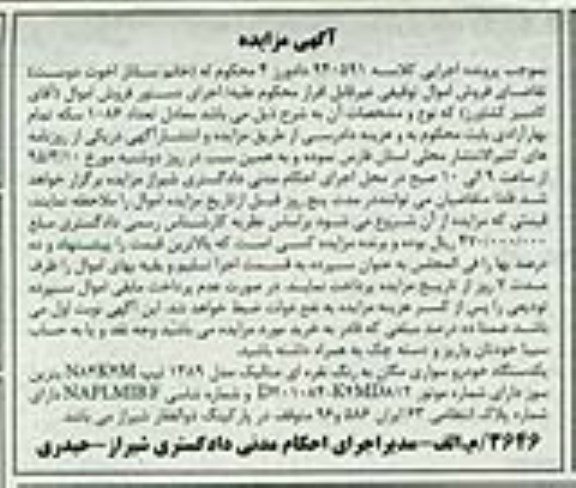 آگهی مزایده
بموجب پرونده اجرایی کلاسه ۹۴۰۵۹۱ دادورز ۴ محکوم له (خانم ساناز اخوت دوست)
تقاضای فروش اموال توقیفی غیرقابل فراز محکوم علیه/ اجرای دستور فروش اموال (آقای
کامبیز کشاورز) که نوع و مشخصات آن به شرح ذیل می باشد معادل تعداد ۱۰۸۶ سکه تمام
بهارآزادی بابت محکوم به و هزینه دادرسی از طریق مزایده و انتشار آگهی دریکی از روزنامه
های کثیرالانتشار محلی استان فارس نموده و به همین سبب در روز دوشنبه مورخ ۹۵/۴/۱۰
از ساعت ۹ الی ۱۰ صبح در محل اجرای احکام مدنی دادگستری شیراز مزایده برگزار خواهد
شد فلذا متقاضیان می توانند در مدت پنج روز قبل از تاریخ مزایده اموال را ملاحظه نمایند،
قیمتی که مزایده از آن شروع می شود براساس نظریه کارشناس رسمی دادگستری مبلغ
ریال بوده و برنده مزایده کسی است که بالاترین قیمت را پیشنهاد و ده
درصد بها را فی المجلس به عنوان سپرده به قسمت اجرا تسلیم و بقیه بهای اموال را ظرف
مدت ۲ روز از تاریخ مزایده پرداخت نمایند. در صورت عدم پرداخت مابقی اموال سپرده
تودیعی را پس از کسر هزینه مزایده به نفع دولت ضبط خواهد شد. این آگهی نوبت اول می
باشد ضمنا ده درصد مبلغی که قادر به خرید مورد مزایده می باشید وجه نقد و یا به حساب
سیبا خودتان واریز و دسته چک به همراه داشته باشید.
یکدستگاه خودرو سواری مگان به رنگ نقره ای متالیک مدل ۱۳۸۹ تیپ بنزین
سوز دارای شماره موتور و شماره شاسی دارای
شماره پلاک انتظامی ۶۳ ایران ۵۸۶ و ۹۶ متوقف در پارکینگ ذوالفقار شیراز می باشد.
۳۶۴۶/م.الف-مدیر اجرای احکام مدنی دادگستری شیراز-حیدری